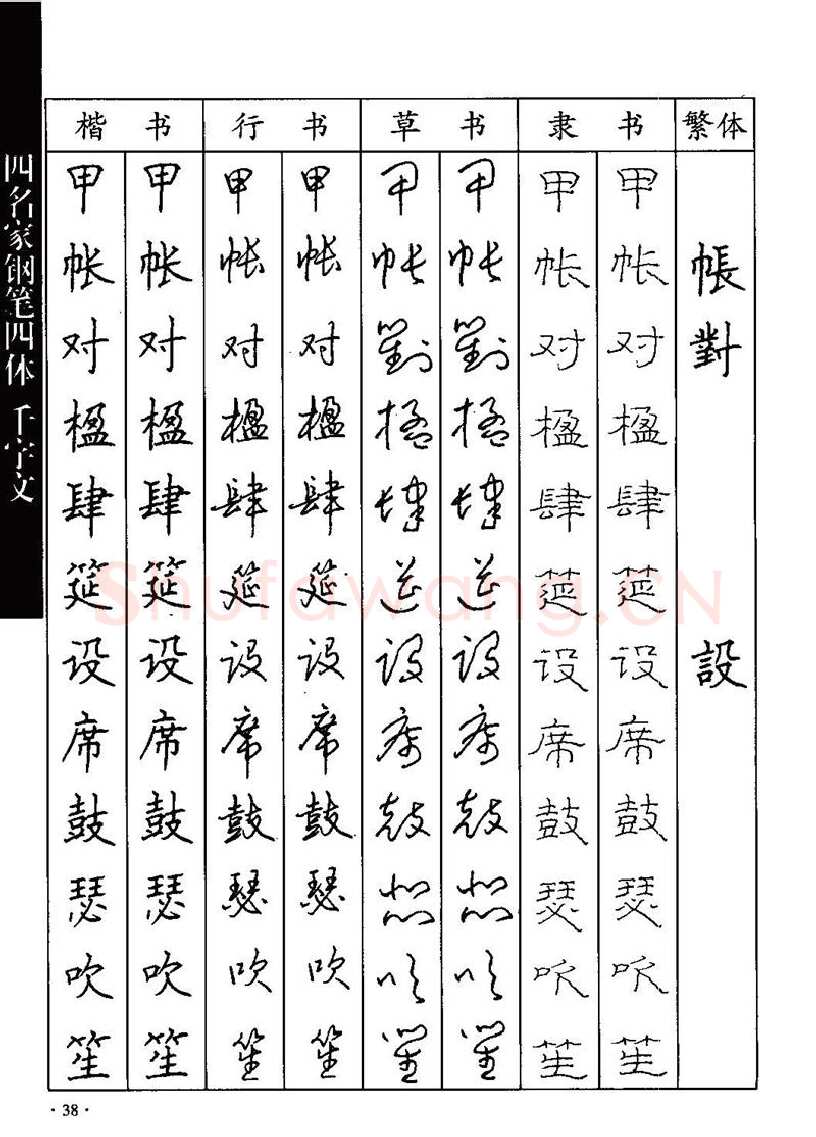 四名家钢笔四体 千字文
楷书 行书 草书 隶书 繁体
甲 甲 甲 甲 甲 甲 甲 甲
帐 帐 帐 帐 帐 帐 帐 帐 帳
对 对 对 对 對 對 对 对 對
楹 楹 楹 楹 楹 楹 楹 楹
肆 肆 肆 肆 肆 肆 肆 肆
筵 筵 筵 筵 筵 筵 筵 筵
Shufawang.CN
设 设 设 设 设 设 设 设 設
席 席 席 席 席 席 席 席
鼓 鼓 鼓 鼓 鼓 鼓 鼓 鼓
瑟 瑟 瑟 瑟 瑟 瑟 瑟 瑟
吹 吹 吹 吹 吹 吹 吹 吹
笙 笙 笙 笙 笙 笙 笙 笙
·38·